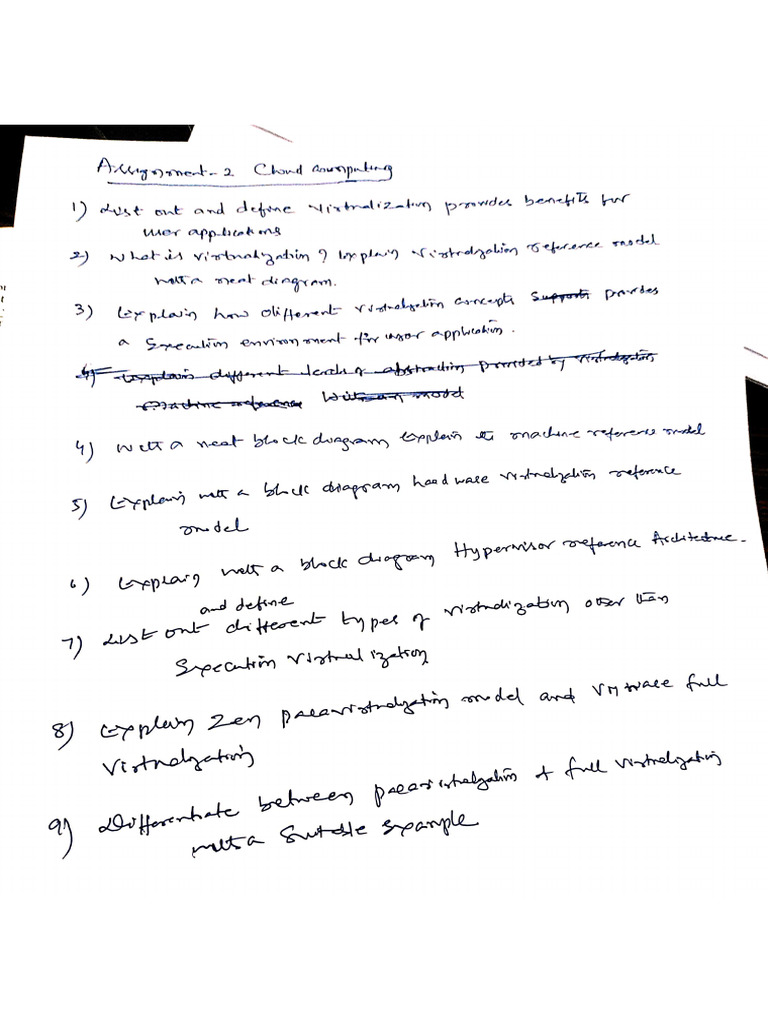 Assignment-2 Cloud Computing
1) List out and define virtualization provides benefits for
user applications
2) What is virtualization? Explain virtualization reference model
with a neat diagram.
3) Explain how different virtualization concepts Supports provides
a Execution environment for user application.
4) Explain different levels of abstraction provided by virtualization
machine reference With an model
4) With a neat block diagram Explain the machine reference model
5) Explain with a block diagram hardware virtualization reference
model
6) Explain with a block diagram Hypervisor reference Architecture.
and define
7) List out different types of virtualization other than
Execution Virtualization
8) Explain Zen paravirtualization model and VMware full
Virtualization
9) Differentiate between paravirtualization & full virtualization
with a Suitable Example